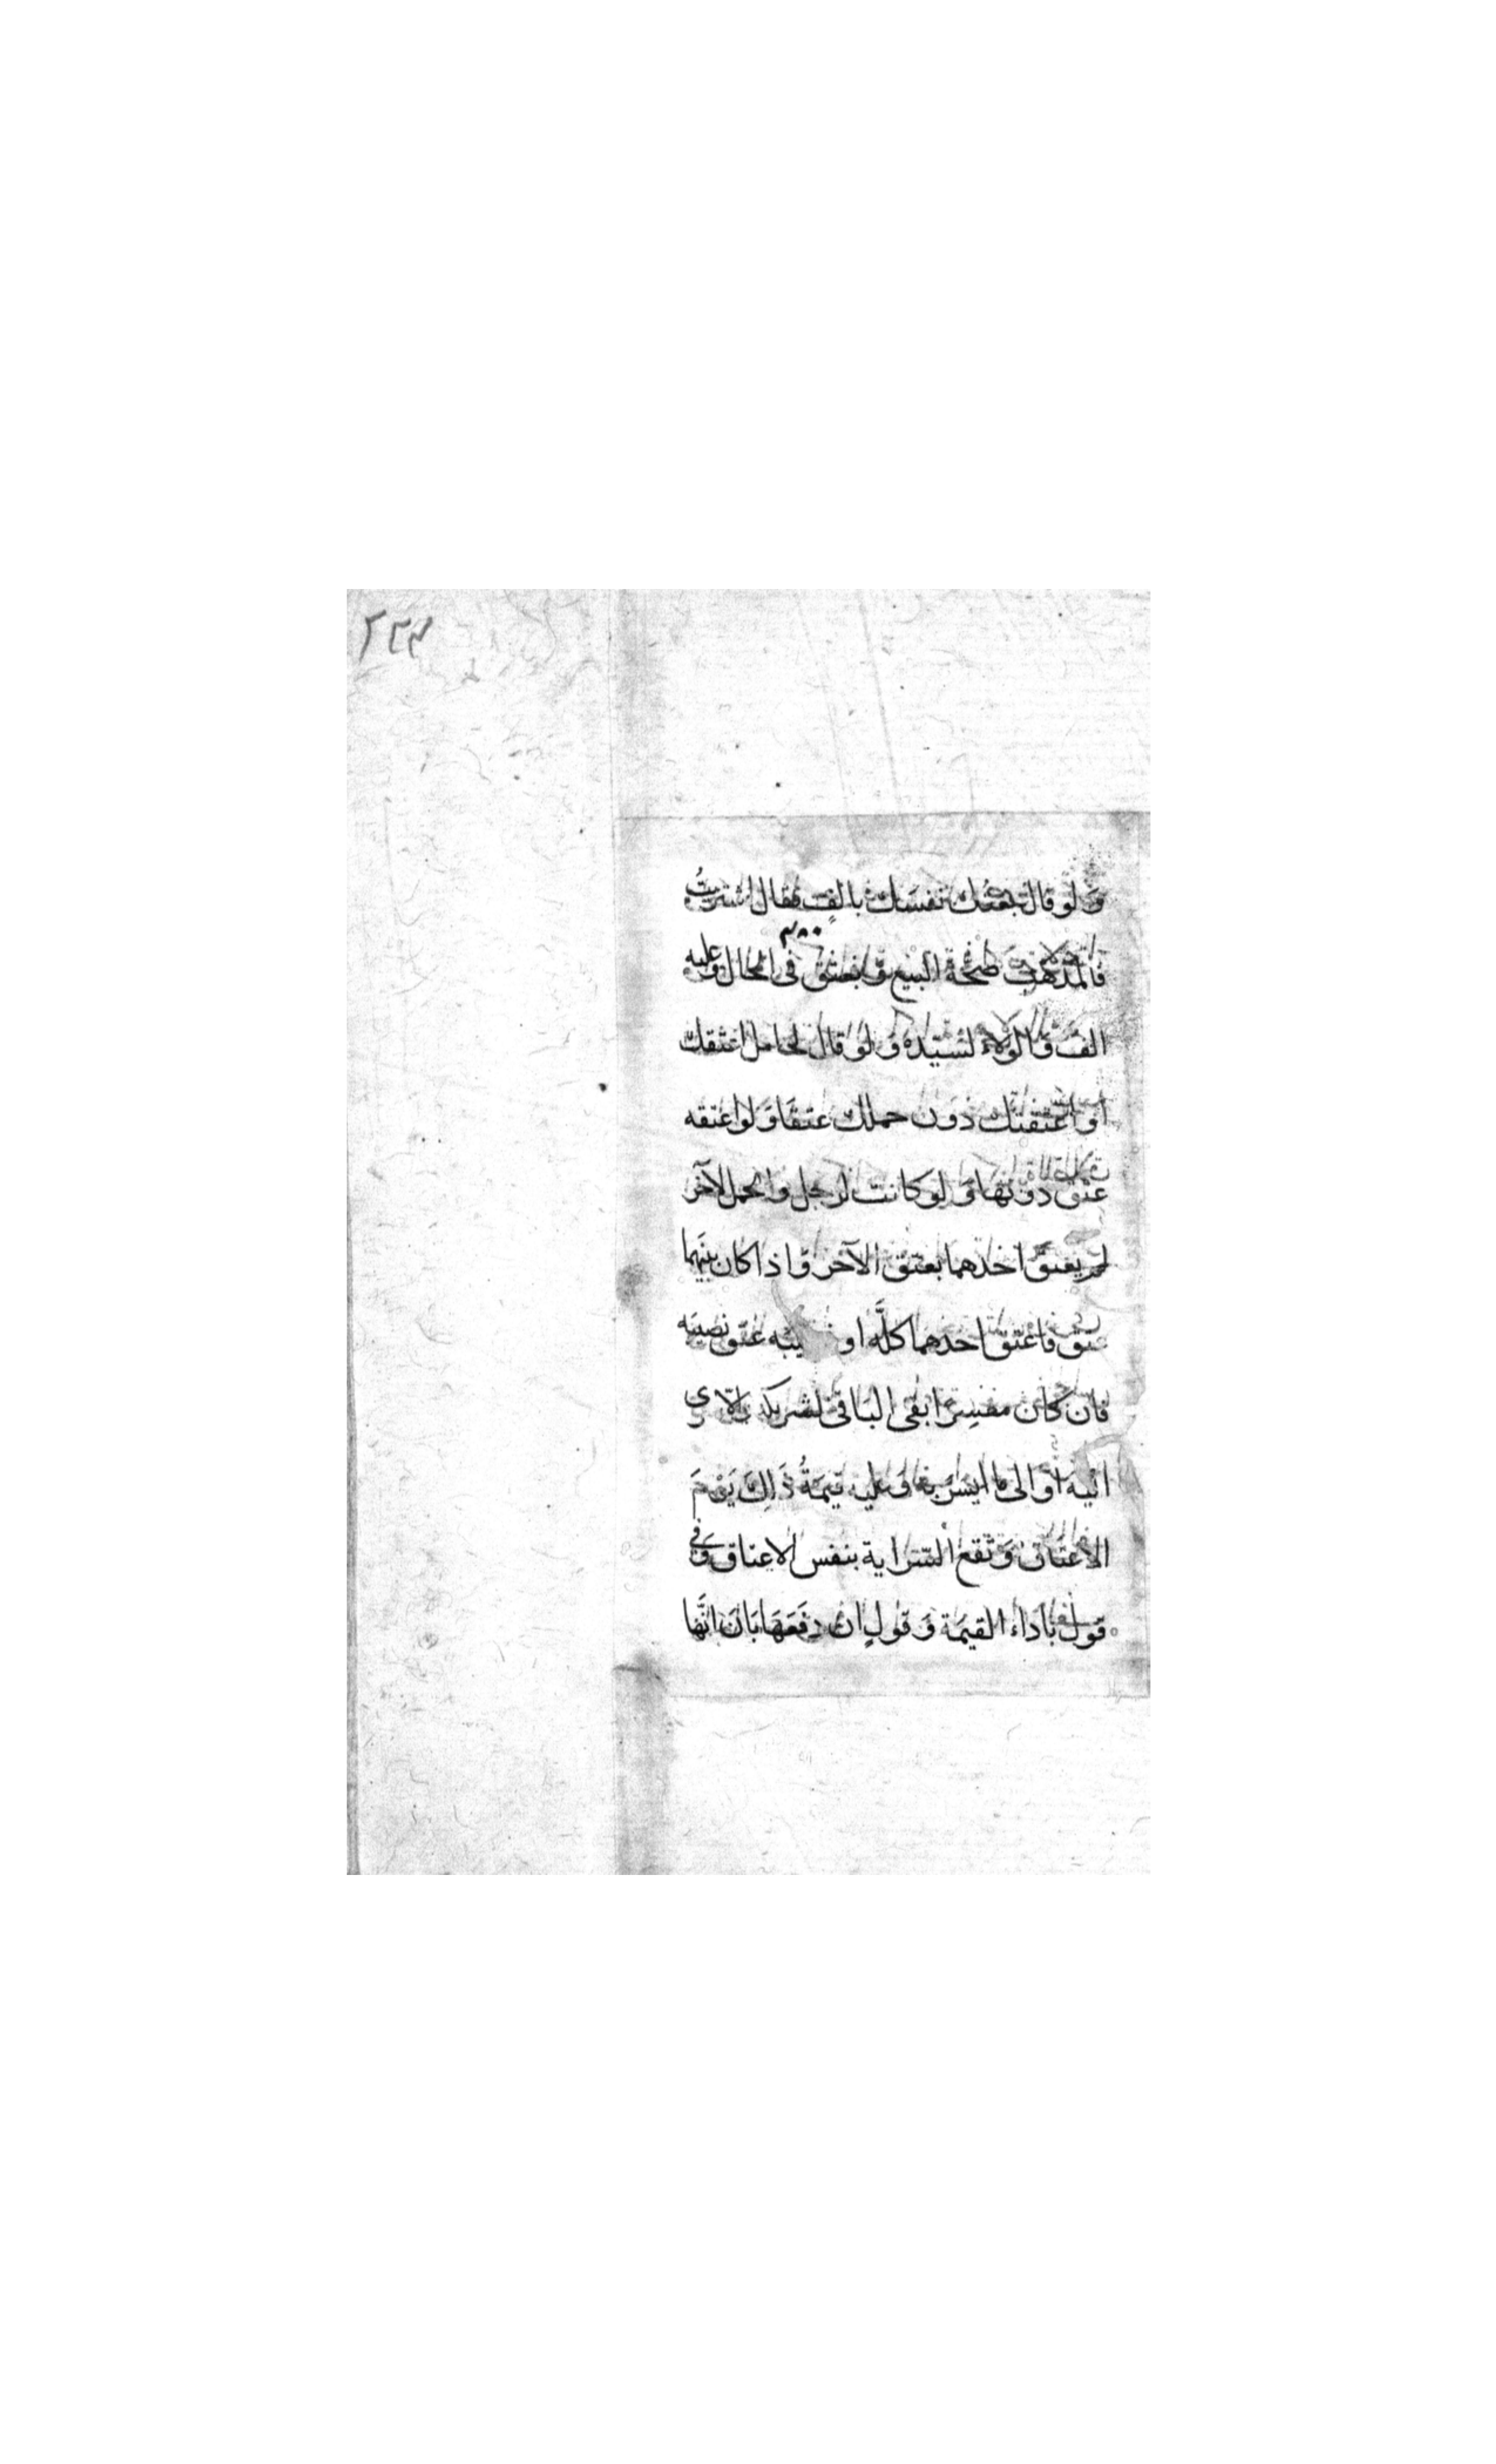 ٢٣٣
وَلو قال بعتُك نفسَك بالفٍ فقال اشتريتُ
فالمذهبُ صحّة البيع وَّيعتق فى الحال وعليه
الفٌ وَّالولاء لسيّده وَلو قال لحامل اعتقتك
او اعتقتك دون حملك عتقا وَلو اعتقه
عتق دونها وَّلو كانت لرجل والحمل لآخر
لم يعتق احدهما بعتق الآخر وَّاذا كان بينهما
فاعتق احدهما كلَّه او عتق نصيبه
فان كان معسِرًا بقى الباقى لشريكه والا
اليه او الى ما ايسر به وَعليه قيمةُ ذَلِكَ يَوْمَ
الاعتاق وَتقع السّراية بنفس الاعتاق وَفي
قول باَداء القيمَة وَقولٍ ان دفَعَهَا بَانَ انَّها